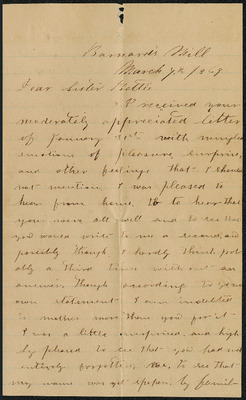 Barnard's Mill
March 7th /269
Dear Sister Hattie
I received your
moderately appreciated letter
of January 31st with mingled
emotions of pleasure, surprise,
and other feelings that I should
not mention. I was pleased to
hear from home, & to hear that
you were all well and to see that
you would write to me a second, and
possibly though I hardly think prob
ably a third time without an
answer. Though according to your
own statement I am indebted
to mother more than you for it
I was a little surprised and high
ly pleased to see that you had not
entirely forgotten me, to see that
my name was yet spoken by famil